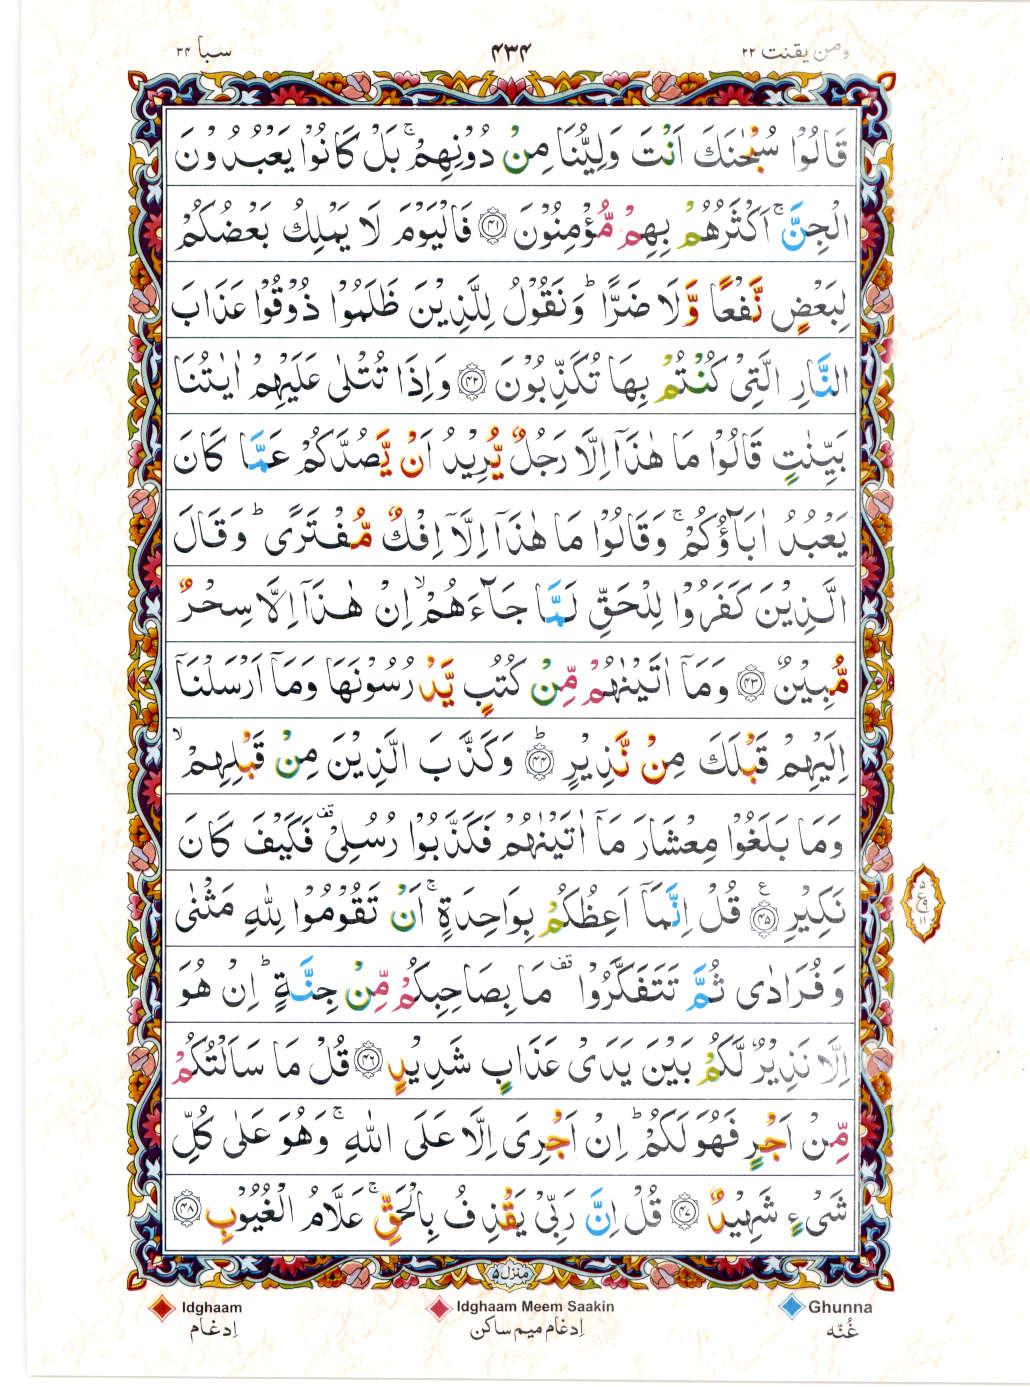 ومن يقنت ٢٢ ٤٣٤ سبا ٣٤
قَالُوْا سُبْحٰنَكَ اَنْتَ وَلِيُّنَا مِنْ دُوْنِهِمْ ۚ بَلْ كَانُوْا يَعْبُدُوْنَ
الْجِنَّ ۚ اَكْثَرُهُمْ بِهِمْ مُّؤْمِنُوْنَ ﴿٤١﴾ فَالْيَوْمَ لَا يَمْلِكُ بَعْضُكُمْ
لِبَعْضٍ نَّفْعًا وَّلَا ضَرًّا ؕ وَنَقُوْلُ لِلَّذِيْنَ ظَلَمُوْا ذُوْقُوْا عَذَابَ
النَّارِ الَّتِيْ كُنْتُمْ بِهَا تُكَذِّبُوْنَ ﴿٤٢﴾ وَاِذَا تُتْلٰى عَلَيْهِمْ اٰيٰتُنَا
بَيِّنٰتٍ قَالُوْا مَا هٰذَاۤ اِلَّا رَجُلٌ يُّرِيْدُ اَنْ يَّصُدَّكُمْ عَمَّا كَانَ
يَعْبُدُ اٰبَآؤُكُمْ ۚ وَقَالُوْا مَا هٰذَاۤ اِلَّاۤ اِفْكٌ مُّفْتَرًى ؕ وَقَالَ
الَّذِيْنَ كَفَرُوْا لِلْحَقِّ لَمَّا جَآءَهُمْ ۙ اِنْ هٰذَاۤ اِلَّا سِحْرٌ
مُّبِيْنٌ ﴿٤٣﴾ وَمَاۤ اٰتَيْنٰهُمْ مِّنْ كُتُبٍ يَّدْرُسُوْنَهَا وَمَاۤ اَرْسَلْنَاۤ
اِلَيْهِمْ قَبْلَكَ مِنْ نَّذِيْرٍ ؕ﴿٤٤﴾ وَكَذَّبَ الَّذِيْنَ مِنْ قَبْلِهِمْ ۙ
وَمَا بَلَغُوْا مِعْشَارَ مَاۤ اٰتَيْنٰهُمْ فَكَذَّبُوْا رُسُلِيْ قف فَكَيْفَ كَانَ
نَكِيْرِ ﴿٤٥﴾ ع قُلْ اِنَّمَاۤ اَعِظُكُمْ بِوَاحِدَةٍ ۚ اَنْ تَقُوْمُوْا لِلّٰهِ مَثْنٰى
٥ ع ١١
وَفُرَادٰى ثُمَّ تَتَفَكَّرُوْا قف مَا بِصَاحِبِكُمْ مِّنْ جِنَّةٍ ؕ اِنْ هُوَ
اِلَّا نَذِيْرٌ لَّكُمْ بَيْنَ يَدَيْ عَذَابٍ شَدِيْدٍ ﴿٤٦﴾ قُلْ مَا سَاَلْتُكُمْ
مِّنْ اَجْرٍ فَهُوَ لَكُمْ ؕ اِنْ اَجْرِيَ اِلَّا عَلَى اللّٰهِ ۚ وَهُوَ عَلٰى كُلِّ
شَيْءٍ شَهِيْدٌ ﴿٤٧﴾ قُلْ اِنَّ رَبِّيْ يَقْذِفُ بِالْحَقِّ ۚ عَلَّامُ الْغُيُوْبِ ﴿٤٨﴾
منزل ٥
Idghaam Idghaam Meem Saakin Ghunna
اِدغام اِدغام میم ساکن غُنّه